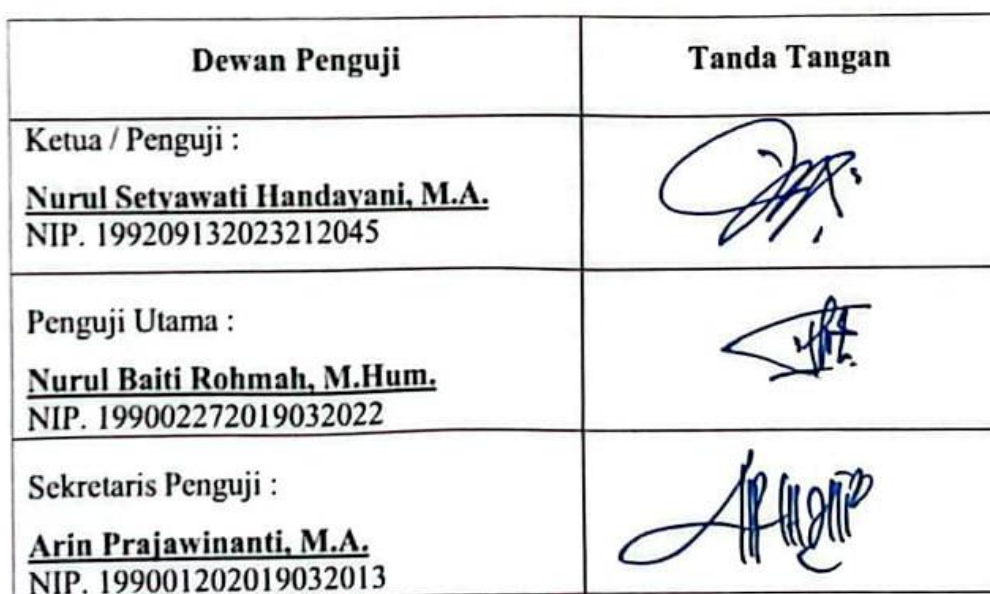 Dewan Penguji
Tanda Tangan
Ketua / Penguji :
Nurul Setyawati Handayani, M.A.
NIP. 199209132023212045
Penguji Utama :
Nurul Baiti Rohmah, M.Hum.
NIP. 199002272019032022
Sekretaris Penguji :
Arin Prajawinanti, M.A.
NIP. 199001202019032013